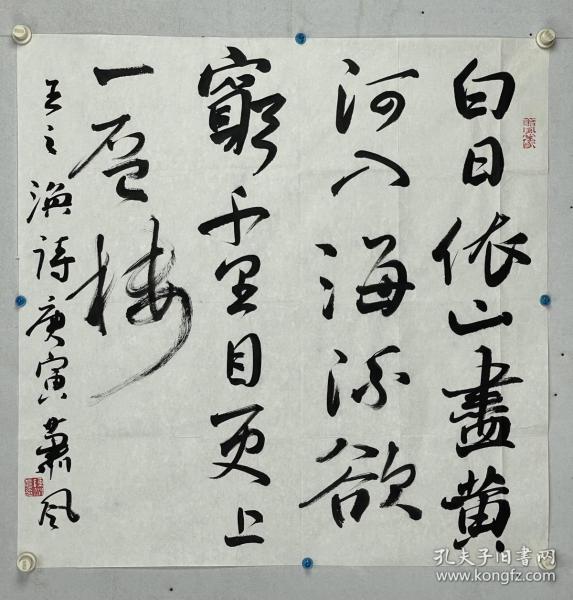 白日依山盡黄
河入海流欲
窮千里目更上
一層樓
王之渙詩庚寅蕭風
孔夫子旧書网
www.kongfz.com